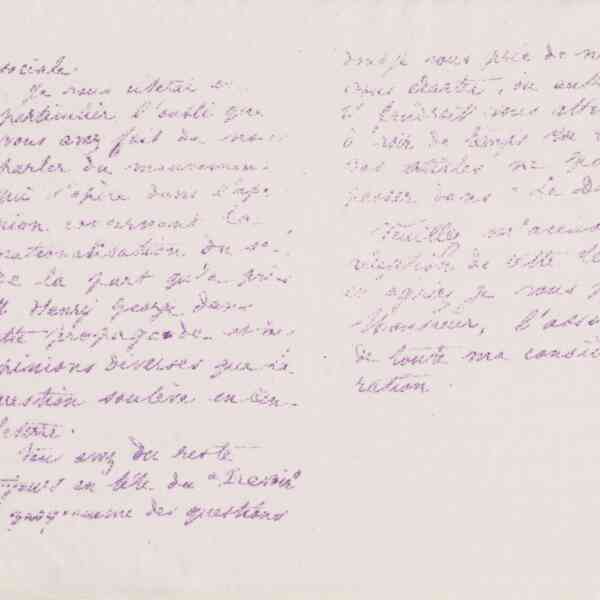 sociale.
Je vous citerai en
particulier l'oubli que
vous avez fait de nous
parler du mouvement
qui s'opère dans l'opi
nion concernant la
nationalisation du sol
et la part qu'a pris
M Henry George dans
cette propagande et les
opinions diverses que la
question soulève en An-
gleterre.
Vous avez du reste
toujours en tête du "Devoir"
programme des questions
donc je vous prie de
ou
vous
à voir de temps en
vos articles ne
passer dans "Le De
Veuillez m'accuser
réception de cette le
et agréer je vous p
Monsieur, l'assu
de toute ma considé
ration.